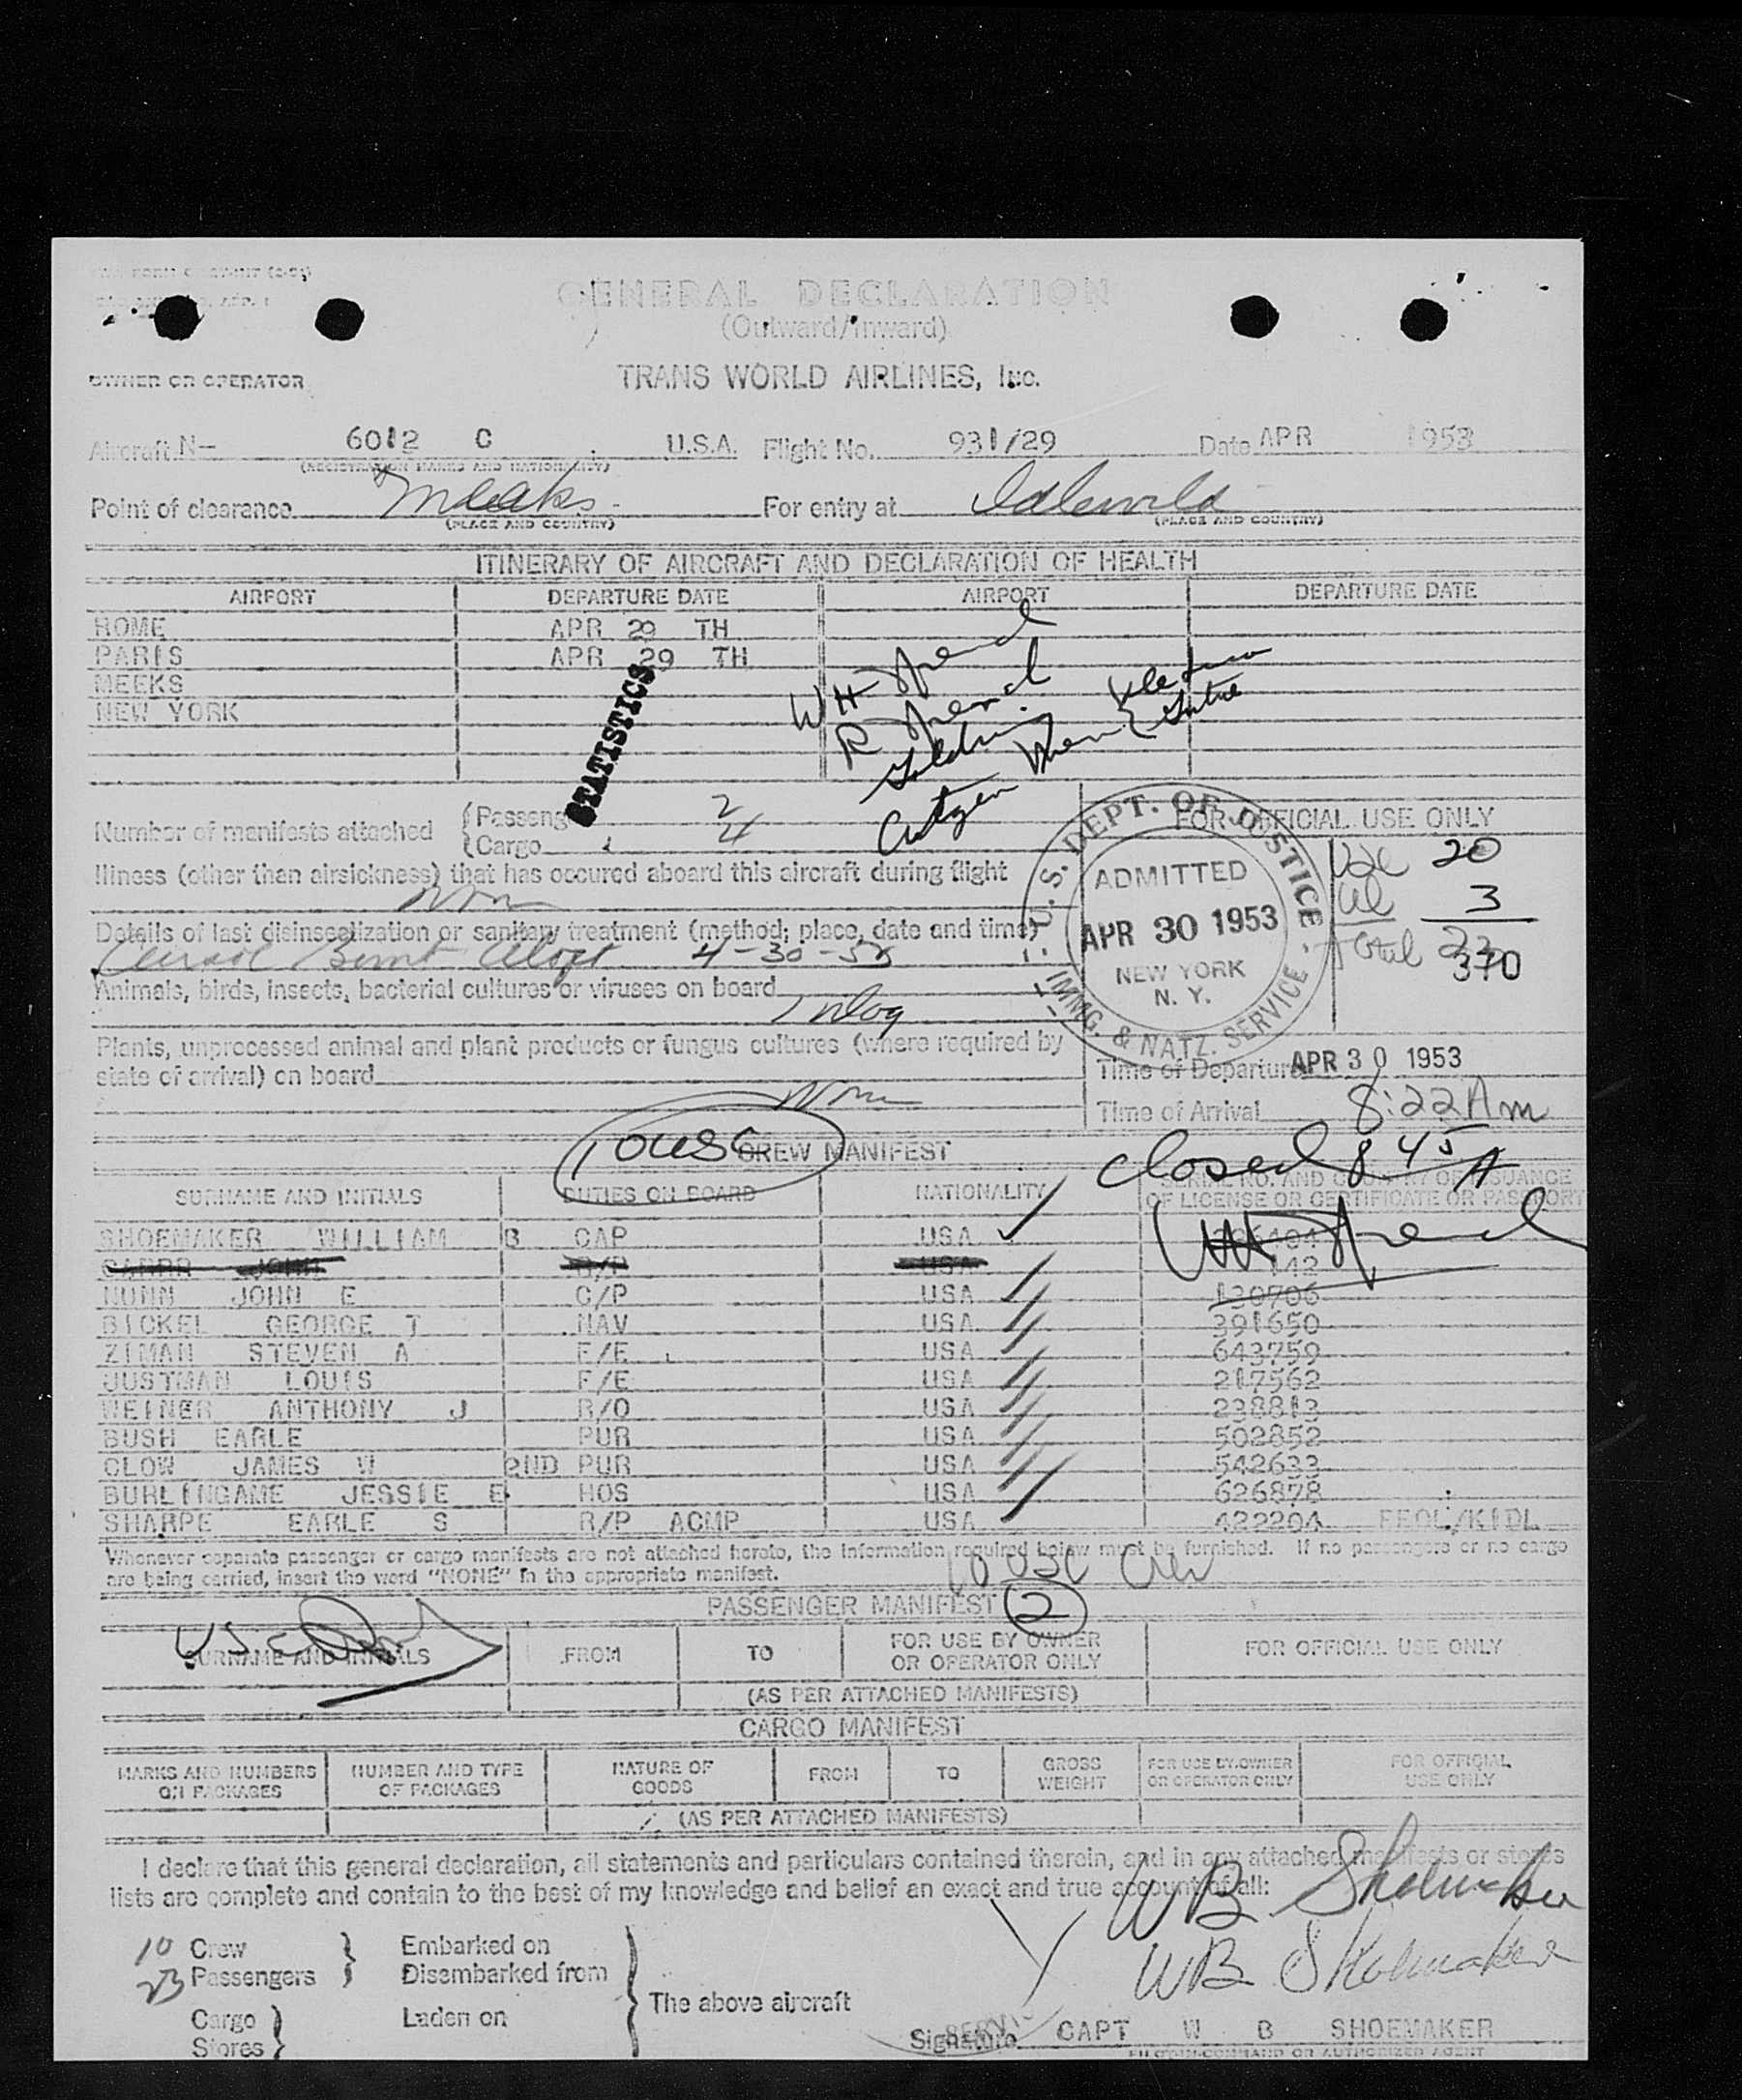 GENERAL DECLARATION
(Outward/Inward)
OWNER OR OPERATOR TRANS WORLD AIRLINES, Inc.
Aircraft N- 6012 C U.S.A. Flight No. 931/29 Date APR 1953
(REGISTRATION MARKS AND NATIONALITY)
Point of clearance Meeks For entry at Idlewild
(PLACE AND COUNTRY) (PLACE AND COUNTRY)
ITINERARY OF AIRCRAFT AND DECLARATION OF HEALTH
AIRPORT DEPARTURE DATE AIRPORT DEPARTURE DATE
ROME APR 29 TH
PARIS APR 29 TH
MEEKS
NEW YORK
STATISTICS
Number of manifests attached { Passeng 2
{ Cargo 4
FOR OFFICIAL USE ONLY
USC 20
Al 3
Total
370
U. S. DEPT. OF JUSTICE
ADMITTED
APR 30 1953
NEW YORK
N. Y.
IMMG. & NATZ. SERVICE
Illness (other than airsickness) that has occured aboard this aircraft during flight
None
Details of last disinsectization or sanitary treatment (method; place, date and time)
Aerosol Bomb Aloft 4-30-53
Animals, birds, insects, bacterial cultures or viruses on board
1 Dog
Plants, unprocessed animal and plant products or fungus cultures (where required by
state of arrival) on board
None
Time of Departure APR 30 1953
Time of Arrival 8:22 Am
closed 8 45 A
10 USC
CREW MANIFEST
SURNAME AND INITIALS DUTIES ON BOARD NATIONALITY SERIAL NO. AND COUNTRY OF ISSUANCE
OF LICENSE OR CERTIFICATE OR PASSPORT
SHOEMAKER WILLIAM B CAP USA
142
NUNN JOHN E C/P USA 130706
BICKEL GEORGE T NAV USA 391650
ZIMAN STEVEN A F/E USA 643759
JUSTMAN LOUIS F/E USA 217562
WEINER ANTHONY J R/O USA 238813
BUSH EARLE PUR USA 502852
CLOW JAMES W 2ND PUR USA 542633
BURLINGAME JESSIE E HOS USA 626878
SHARPE EARLE S R/P ACMP USA 422204 FEOL/KIDL
Whenever separate passenger or cargo manifests are not attached hereto, the information required below must be furnished. If no passengers or no cargo
are being carried, insert the word "NONE" in the appropriate manifest.
10 USC Crew
PASSENGER MANIFEST 2
SURNAME AND INITIALS FROM TO FOR USE BY OWNER
OR OPERATOR ONLY FOR OFFICIAL USE ONLY
(AS PER ATTACHED MANIFESTS)
CARGO MANIFEST
MARKS AND NUMBERS
ON PACKAGES NUMBER AND TYPE
OF PACKAGES NATURE OF
GOODS FROM TO GROSS
WEIGHT FOR USE BY OWNER
OR OPERATOR ONLY FOR OFFICIAL
USE ONLY
(AS PER ATTACHED MANIFESTS)
I declare that this general declaration, all statements and particulars contained therein, and in any attached manifests or stores
lists are complete and contain to the best of my knowledge and belief an exact and true account of all:
WB Shoemaker
WB Shoemaker
10 Crew } Embarked on }
23 Passengers } Disembarked from
The above aircraft
Cargo } Laden on
Stores }
Signature CAPT W B SHOEMAKER
PILOT-IN-COMMAND OR AUTHORIZED AGENT